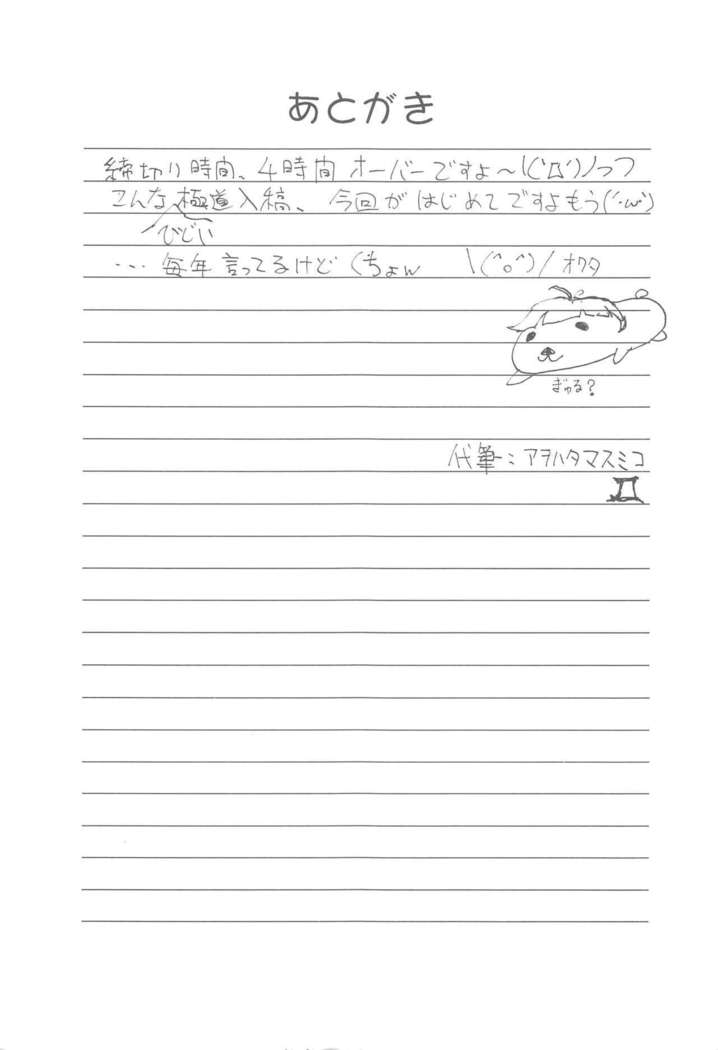 あとがき
締切り時間、4時間オーバーですよ～\(´Д`)ノっつ
こんな極道入稿、今回がはじめてですよもう(´･ω･`)
ひどい
…毎年言ってるけど(ちょん \(^o^)/オワタ
ぎゅる?
代筆:アヲハタマスミコ